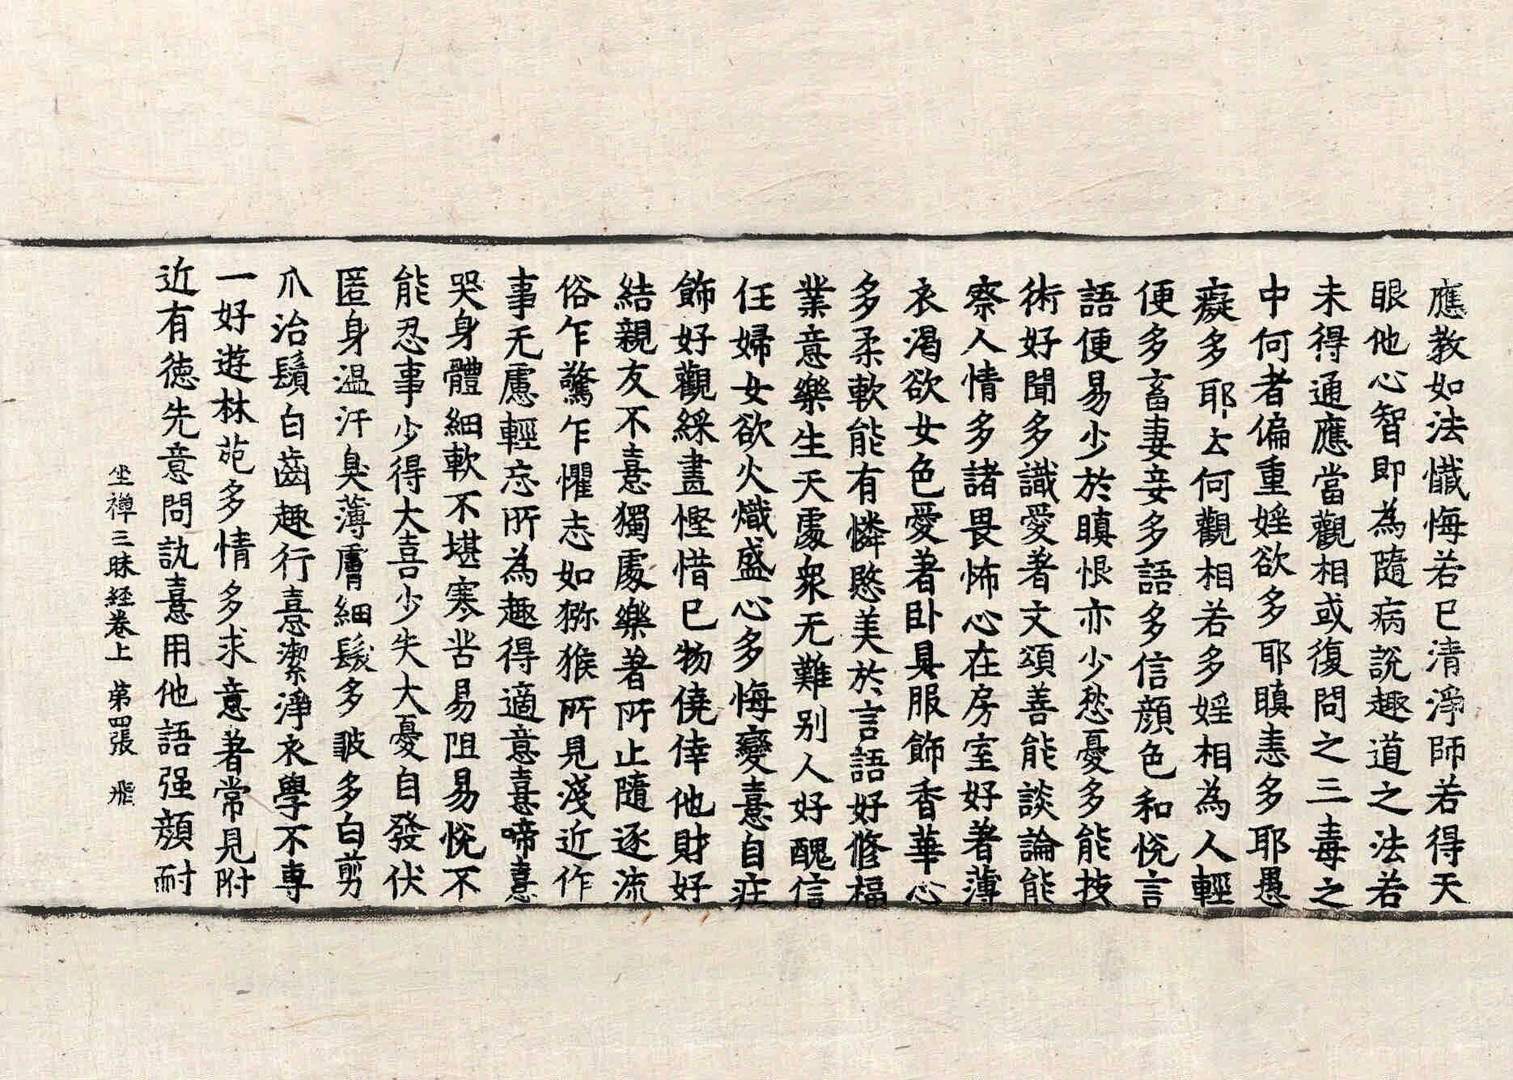 應教如法懺悔若已清淨師若得天
眼他心智即為隨病說趣道之法若
未得通應當觀相或復問之三毒之
中何者偏重婬欲多耶瞋恚多耶愚
癡多耶云何觀相若多婬相為人輕
便多畜妻妾多語多信顏色和悅言
語便易少於瞋恨亦少愁憂多能技
術好聞多識愛著文頌善能談論能
察人情多諸畏怖心在房室好著薄
衣渴欲女色愛著卧具服飾香華心
多柔軟能有憐愍美於言語好修福
業意樂生天處衆无難別人好醜信
任婦女欲火熾盛心多悔變憙自莊
飾好觀綵畫慳惜已物僥倖他財好
結親友不憙獨處樂著所止隨逐流
俗乍驚乍懼志如獼猴所見淺近作
事无慮輕忘所為趣得適意憙啼憙
哭身體細軟不堪寒苦易阻易悅不
能忍事少得大喜少失大憂自發伏
匿身温汗臭薄膚細髮多皺多白剪
爪治鬚白齒趣行憙潔淨衣學不專
一好遊林苑多情多求意著常見附
近有德先意問訊憙用他語强顏耐
坐禪三昧經卷上 第四張 飛